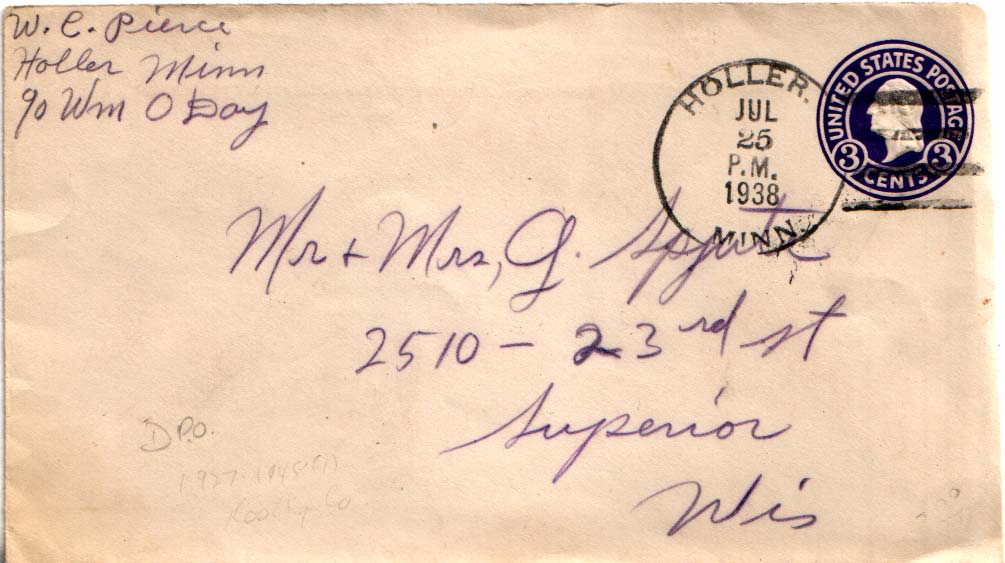 W. C. Pierce
Holler Minn
c/o Wm O Day
HOLLER.
JUL
25
P.M.
1938
MINN.
UNITED STATES POSTAGE
3 CENTS 3
Mr & Mrs, G.
2510 - 23rd st
Superior
Wis
D P.O.
Co